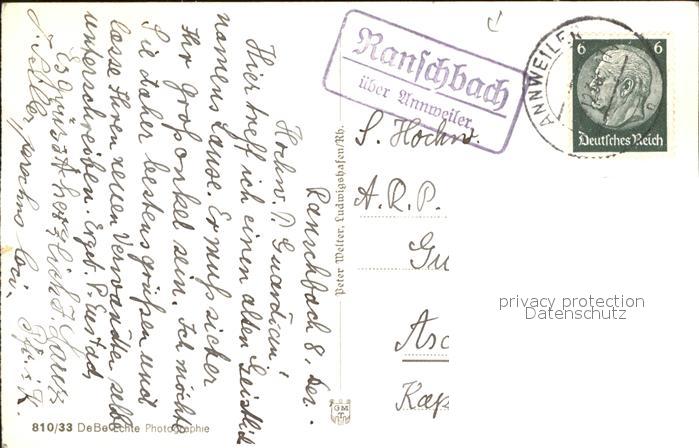 Ranschbach
über Annweiler
ANNWEILER
6 6
Deutsches Reich
S. Hochw.
A. R. P.
Gu
Asc
Kap
privacy protection
Datenschutz
Peter Welter, Ludwigshafen/Rh.
Ranschbach 8,
Hochw. P. Guardian!
Hier treff ich einen alten Geistlich
namens Lause. Er muß sicher
Ihr Großonkel sein. Ich möchte
Sie daher bestens grüßen und
lasse Ihren neuen Verwandten selb
unterschreiben. Ergeb. P. Eustach
Es grüßt herzlich J. Laux
parochus loci.
810/33 DeBe Echte Photographie